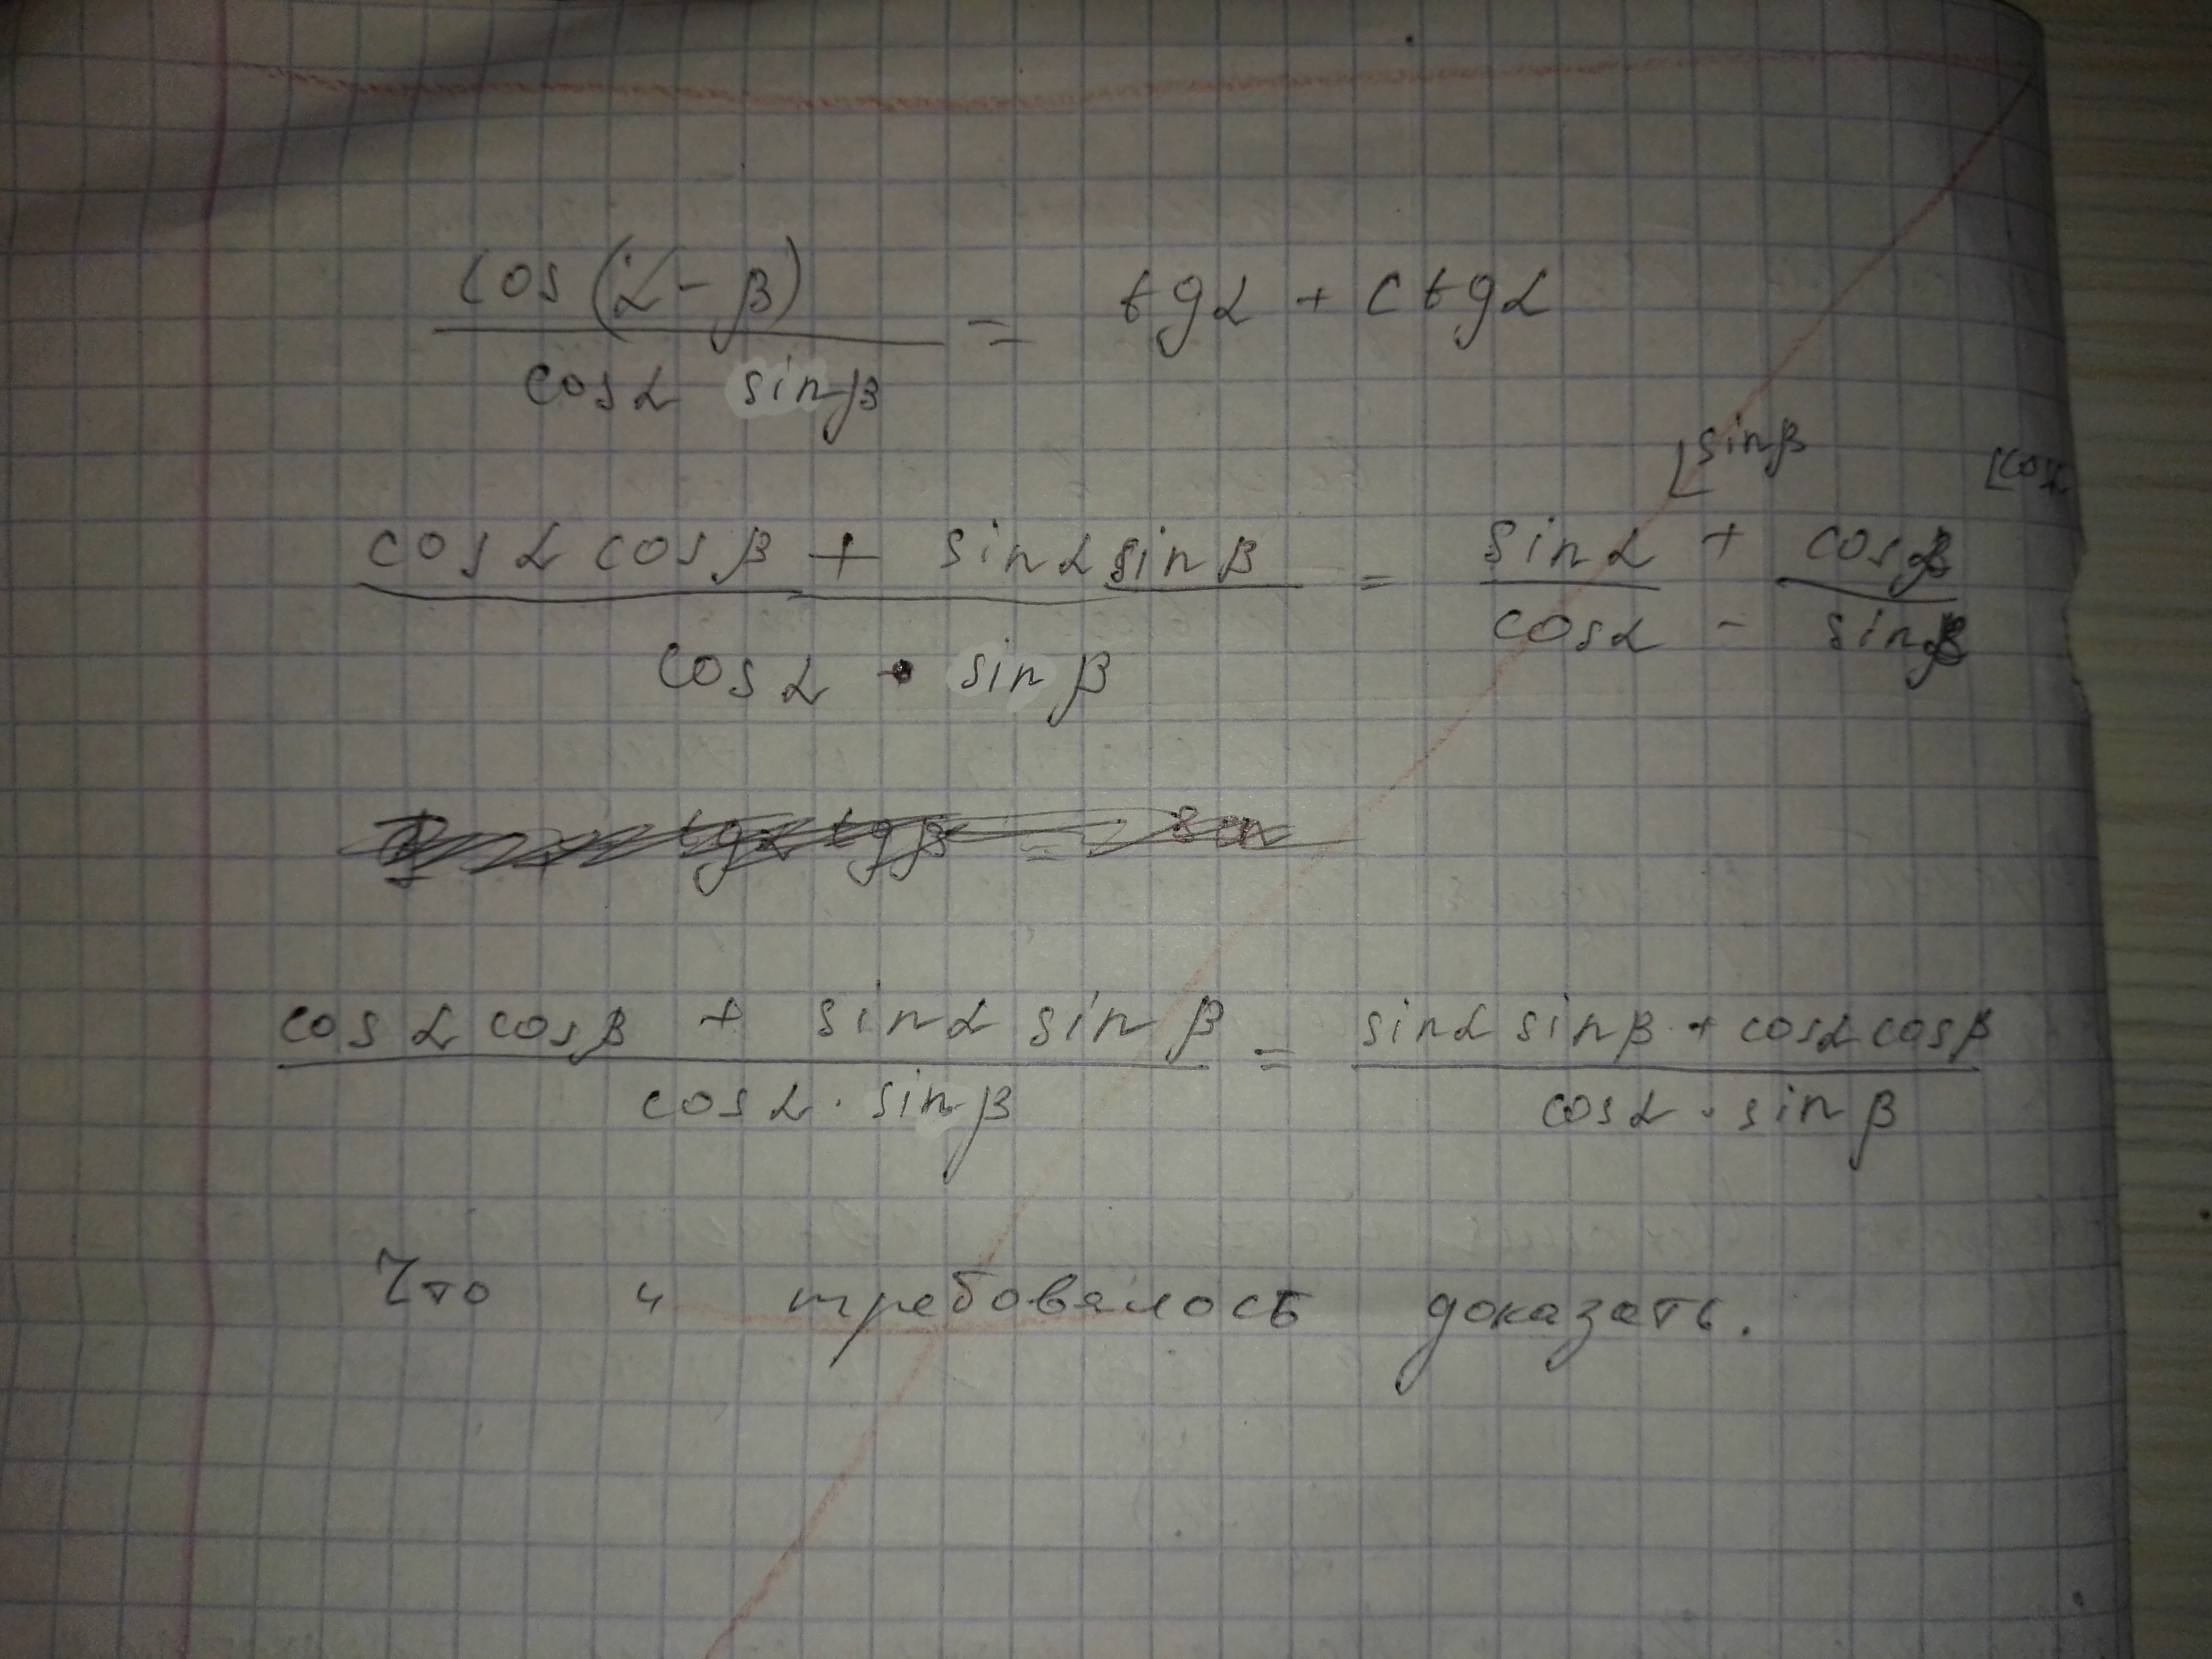 cos(α-β) / cosα sinβ = tgα + ctgα
cosα cosβ + sinα sinβ / cosα · sinβ = sinα / cosα + cosβ / sinβ
sinβ cosα
cosα cosβ + sinα sinβ / cosα · sinβ = sinα sinβ + cosα cosβ / cosα · sinβ
Что и требовялось доказать.